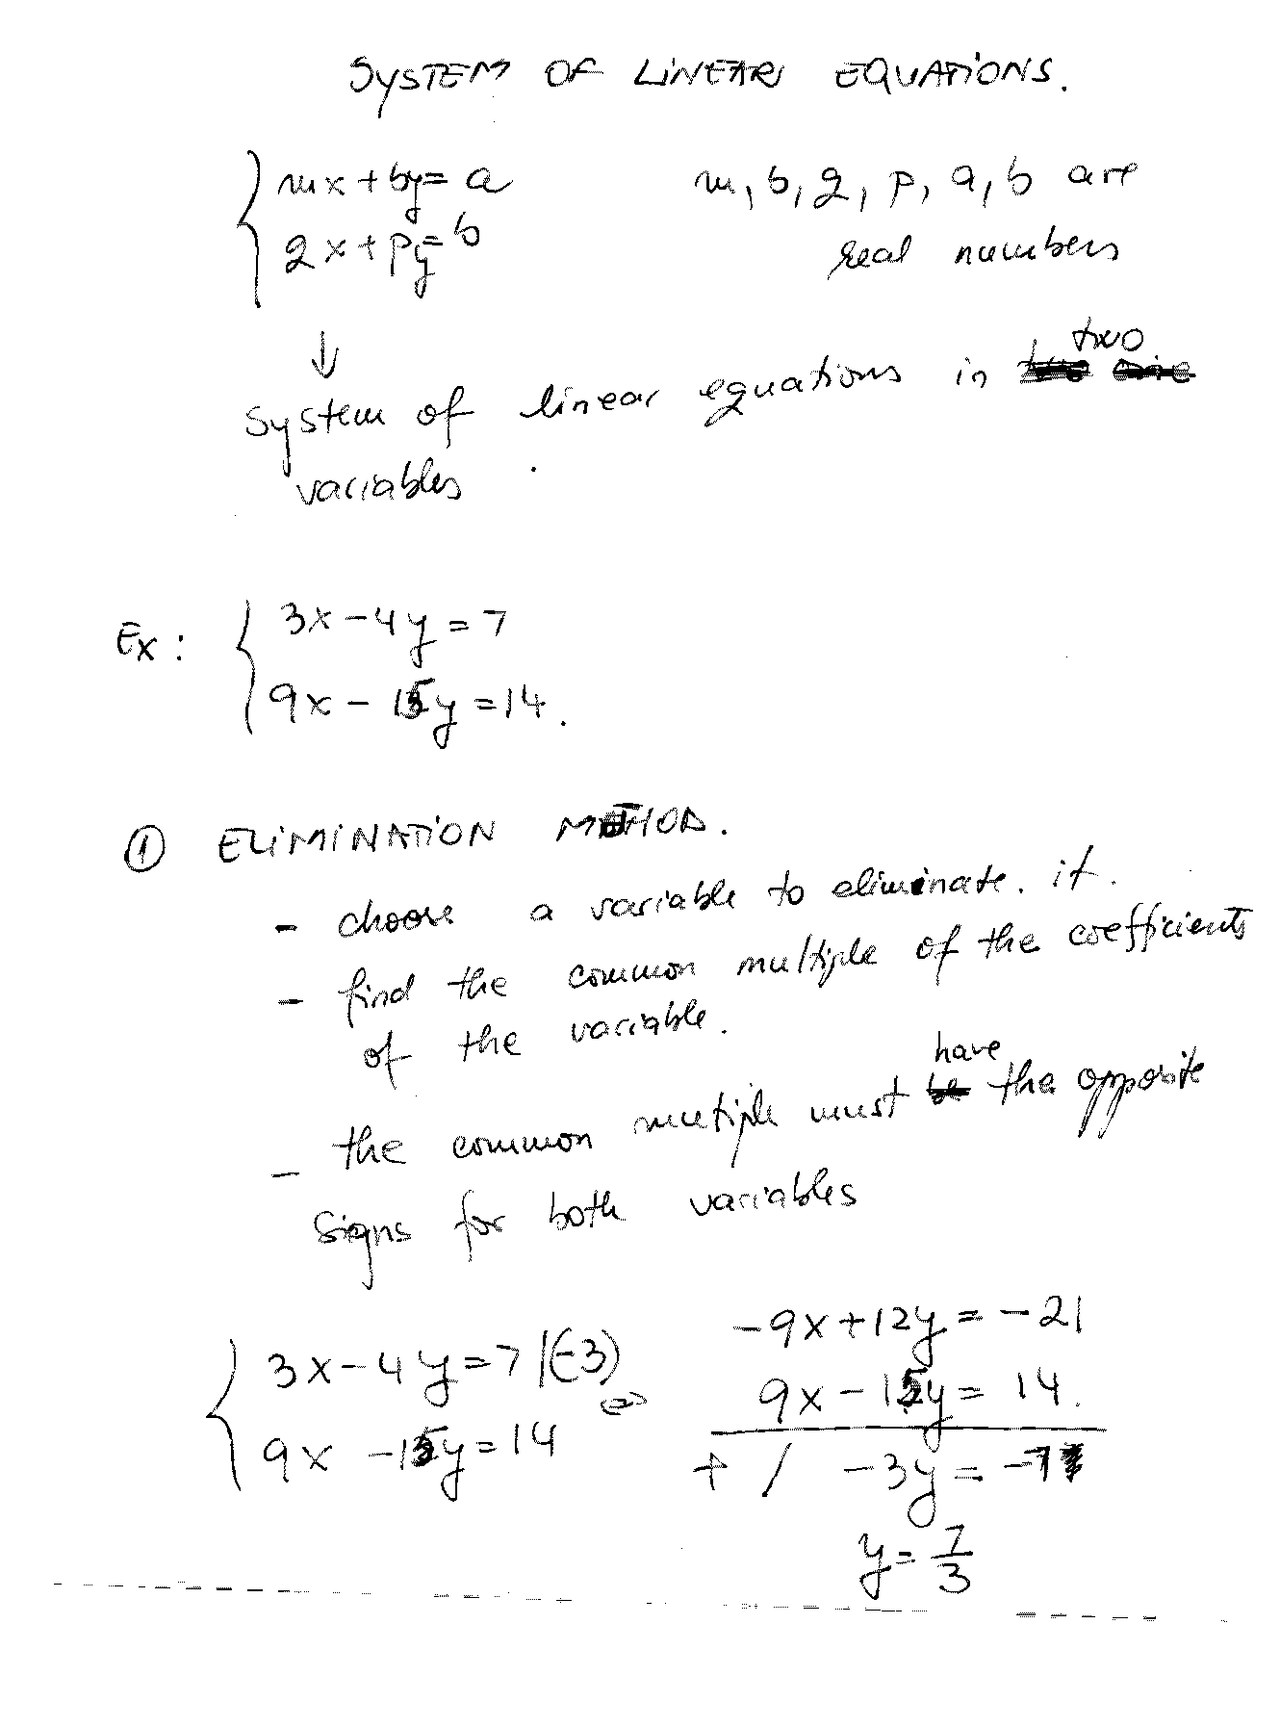 SYSTEM OF LINEAR EQUATIONS.
mx + by = a m, b, q, p, a, b are
qx + py = b real numbers
↓
system of linear equations in two
variables.
Ex: 3x - 4y = 7
9x - 15y = 14.
① ELIMINATION METHOD.
- choose a variable to eliminate. it.
- find the common multiple of the coefficients
of the variable.
have
- the common multiple must be the opposite
signs for both variables
3x - 4y = 7 |(-3) -9x + 12y = -21
9x - 15y = 14 ⇔ 9x - 15y = 14.
+ / -3y = -7
y = 7/3